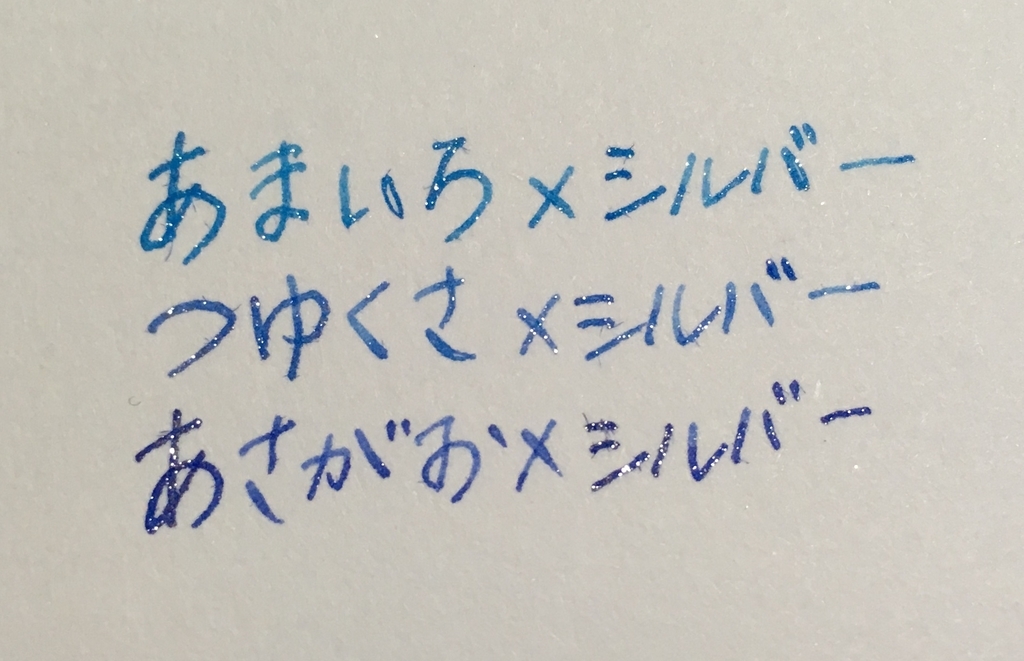 あまいろ×シルバー
つゆくさ×シルバー
あさがお×シルバー